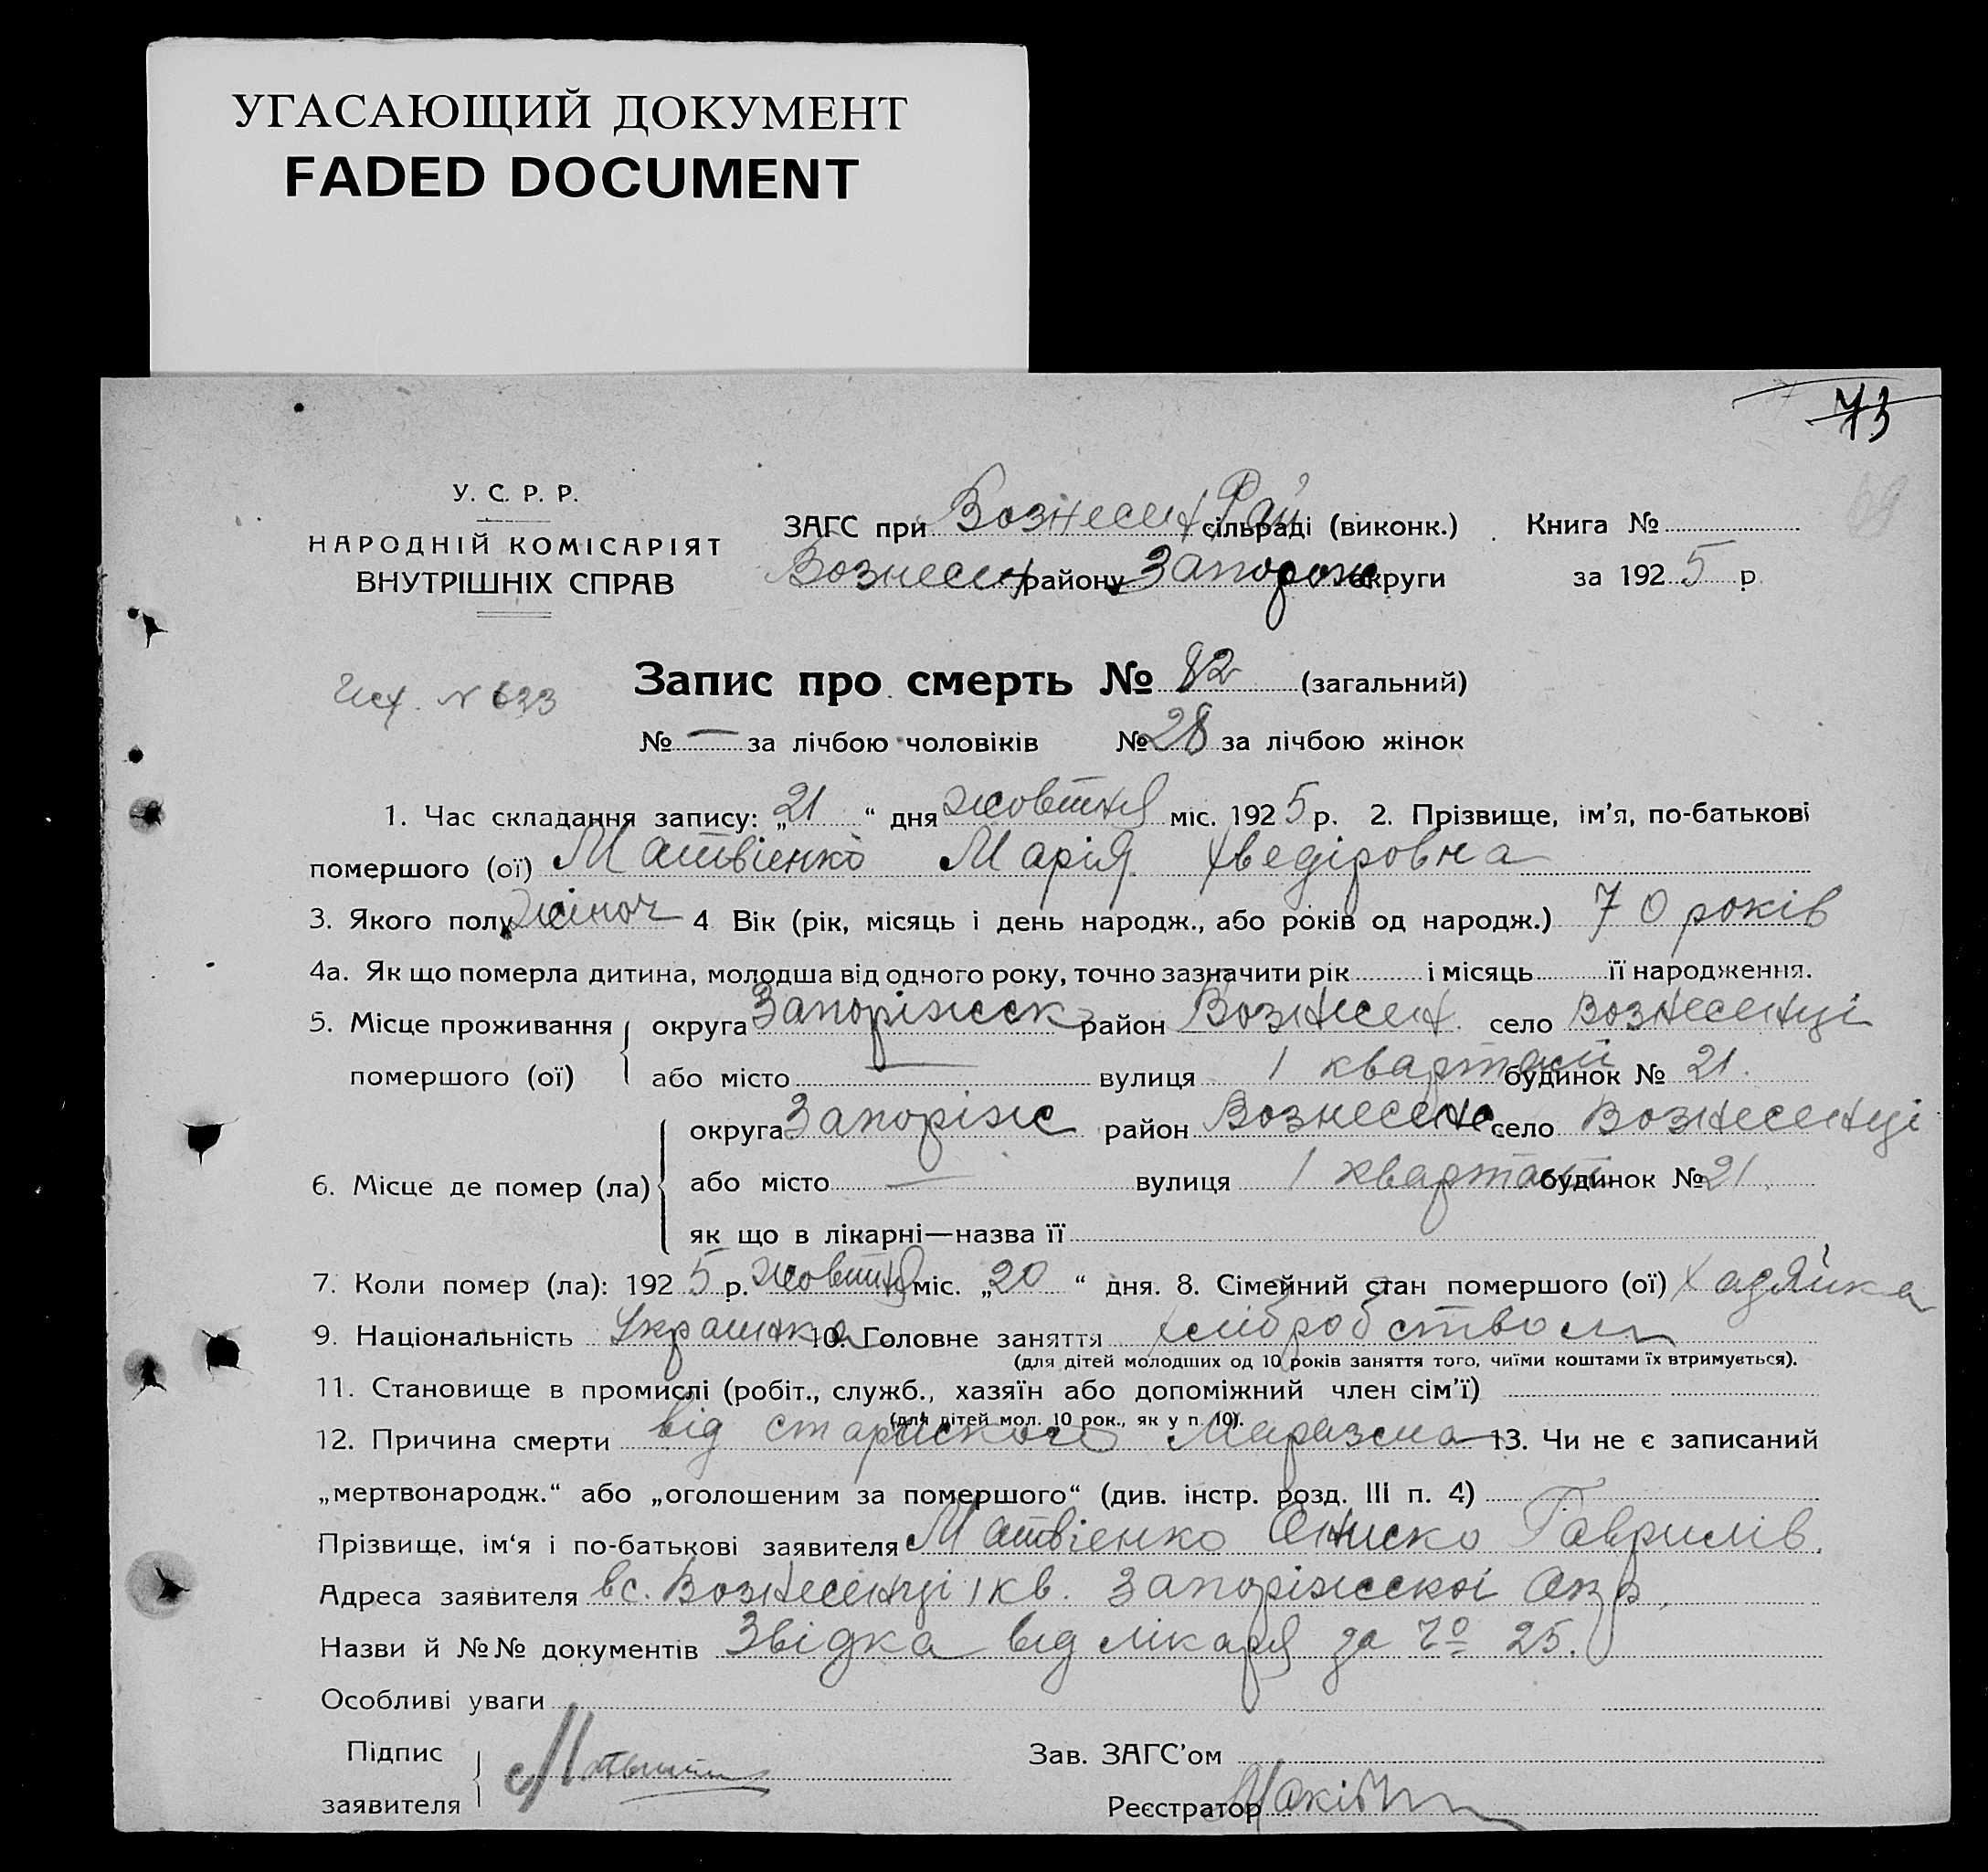 УГАСАЮЩИЙ ДОКУМЕНТ
FADED DOCUMENT
73
У. С. Р. Р.
НАРОДНІЙ КОМІСАРІЯТ
ВНУТРІШНІХ СПРАВ
ЗАГС при Вознесен Рай сільраді (виконк.) Книга №
Вознесен району Запорож округи за 1925 р.
Запис про смерть № 82 (загальний)
№ — за лічбою чоловіків № 28 за лічбою жінок
1. Час складання запису: „21“ дня жовтня міс. 1925 р. 2. Прізвище, ім'я, по-батькові
помершого (ої) Матвіенко Марія Хведіровна
3. Якого полу жіноч 4 Вік (рік, місяць і день народж., або років од народж.) 70 років
4а. Як що померла дитина, молодша від одного року, точно зазначити рік і місяць її народження.
5. Місце проживання помершого (ої) округа Запоріжск район Вознесен село Вознесенці
або місто — вулиця 1 квартал будинок № 21.
6. Місце де помер (ла) округа Запоріж район Вознесен село Вознесенці
або місто — вулиця 1 квартал будинок № 21.
як що в лікарні—назва її
7. Коли помер (ла): 1925 р. жовтня міс. „20“ дня. 8. Сімейний стан помершого (ої)
9. Національність Украинка 10. Головне заняття хліборобством
(для дітей молодших од 10 років заняття того, чиїми коштами їх втримується).
11. Становище в промислі (робіт., служб., хазяїн або допоміжний член сім'ї)
(для дітей мол. 10 рок., як у п. 10).
12. Причина смерти від старческого Маразма 13. Чи не є записаний
„мертвонародж.“ або „оголошеним за помершого“ (див. інстр. розд. III п. 4)
Прізвище, ім'я і по-батькові заявителя Матвіенко Ониско Гаврилів.
Адреса заявителя в с. Вознесенці 1 кв. Запоріжскої Окр.
Назви й №№ документів Звідка від лікаря за 25.
Особливі уваги
Підпис заявителя
Зав. ЗАГС'ом
Реєстратор